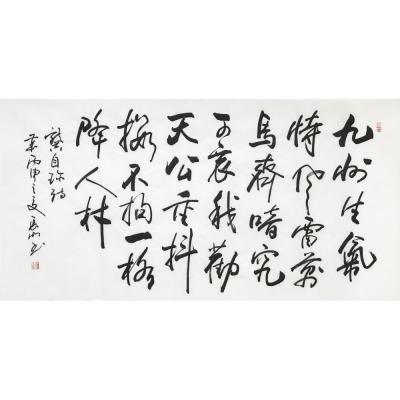 九州生氣
恃風雷萬
馬齊喑究
可哀我勸
天公重抖
擻不拘一格
降人材
龔自珍詩
丙申之夏 书